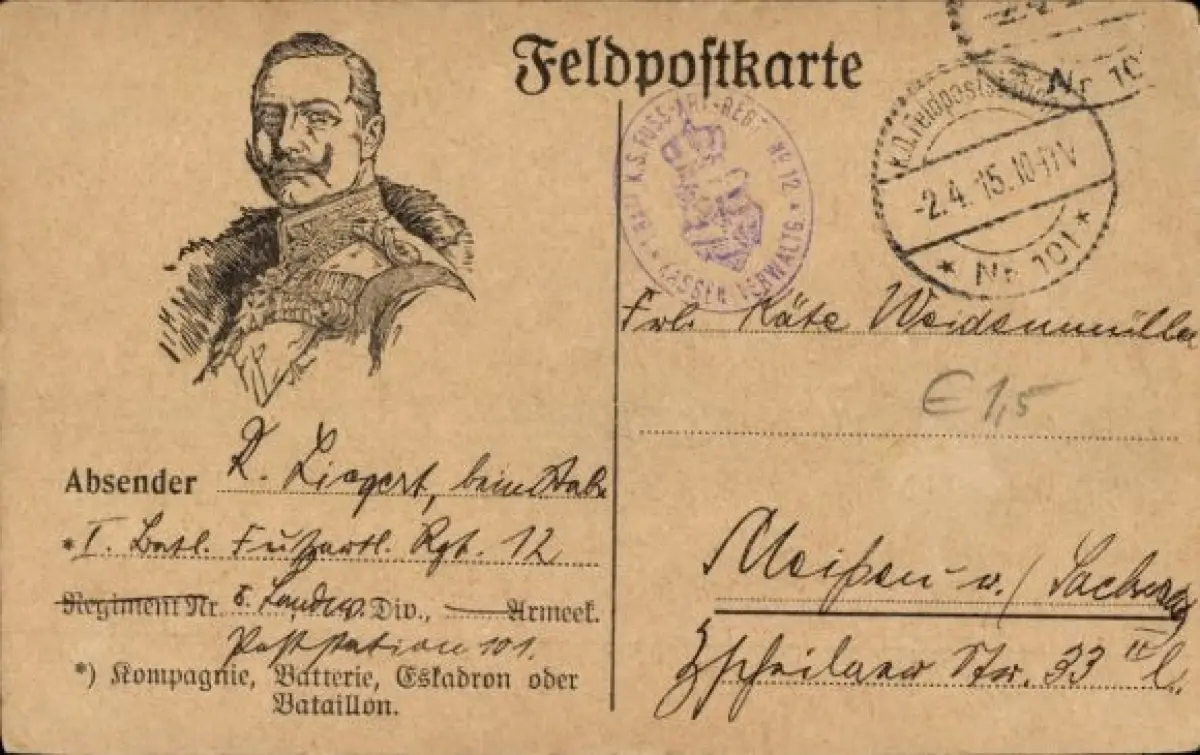 Feldpostkarte
Nr 101
K.D. Feldpost
-2.4.15. 10-11V
* Nr 101 *
K.S. FUSS-ART-REGT. NR 12 * KASSEN-VERWALTG. *
Frl. Käte Weidenmüller
€ 1,5
Absender K. Liegert, beim Stabe
*I. Batl. Fußartl. Rgt. 12
Regiment Nr. 8. Landw. Div., Armeek.
Poststation 101.
*) Kompagnie, Batterie, Eskadron oder
Bataillon.
Meißen i./Sachsen
Str. 33 IV l.